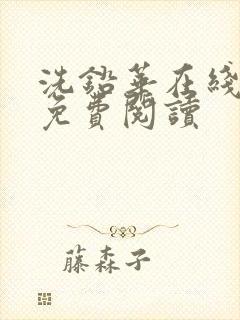 洗鉛華在綫
免費閱讀
藤森子